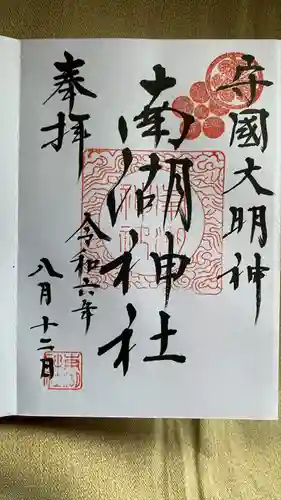 守國大明神
南湖神社
奉拝
令和六年
八月十二日